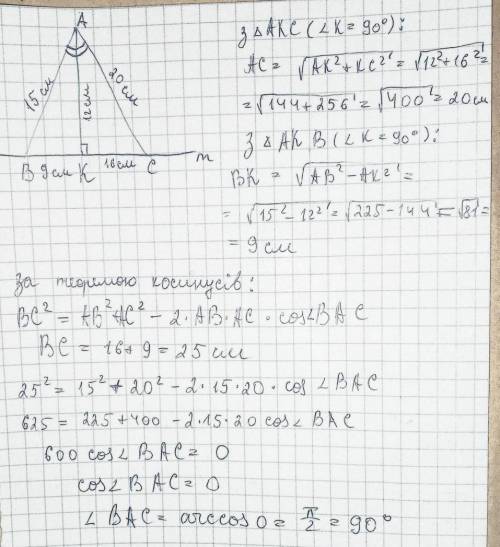 A
15 см
12 см
20 см
B 9 см K 16 см C m
З △AKC (∠K = 90°):
AC = √AK²+KC² = √12²+16² =
= √144+256 = √400 = 20 см
З △AKB (∠K = 90°):
BK = √AB² - AK² =
= √15² - 12² = √225 - 144 = √81 =
= 9 см
За теоремою косинусів:
BC² = AB² AC² - 2·AB·AC · cos∠BAC
BC = 16 + 9 = 25 см
25² = 15² + 20² - 2·15·20 · cos ∠BAC
625 = 225 + 400 - 2·15·20 cos∠BAC
600 cos∠BAC = 0
cos∠BAC = 0
∠BAC = arccos 0 = π/2 = 90°